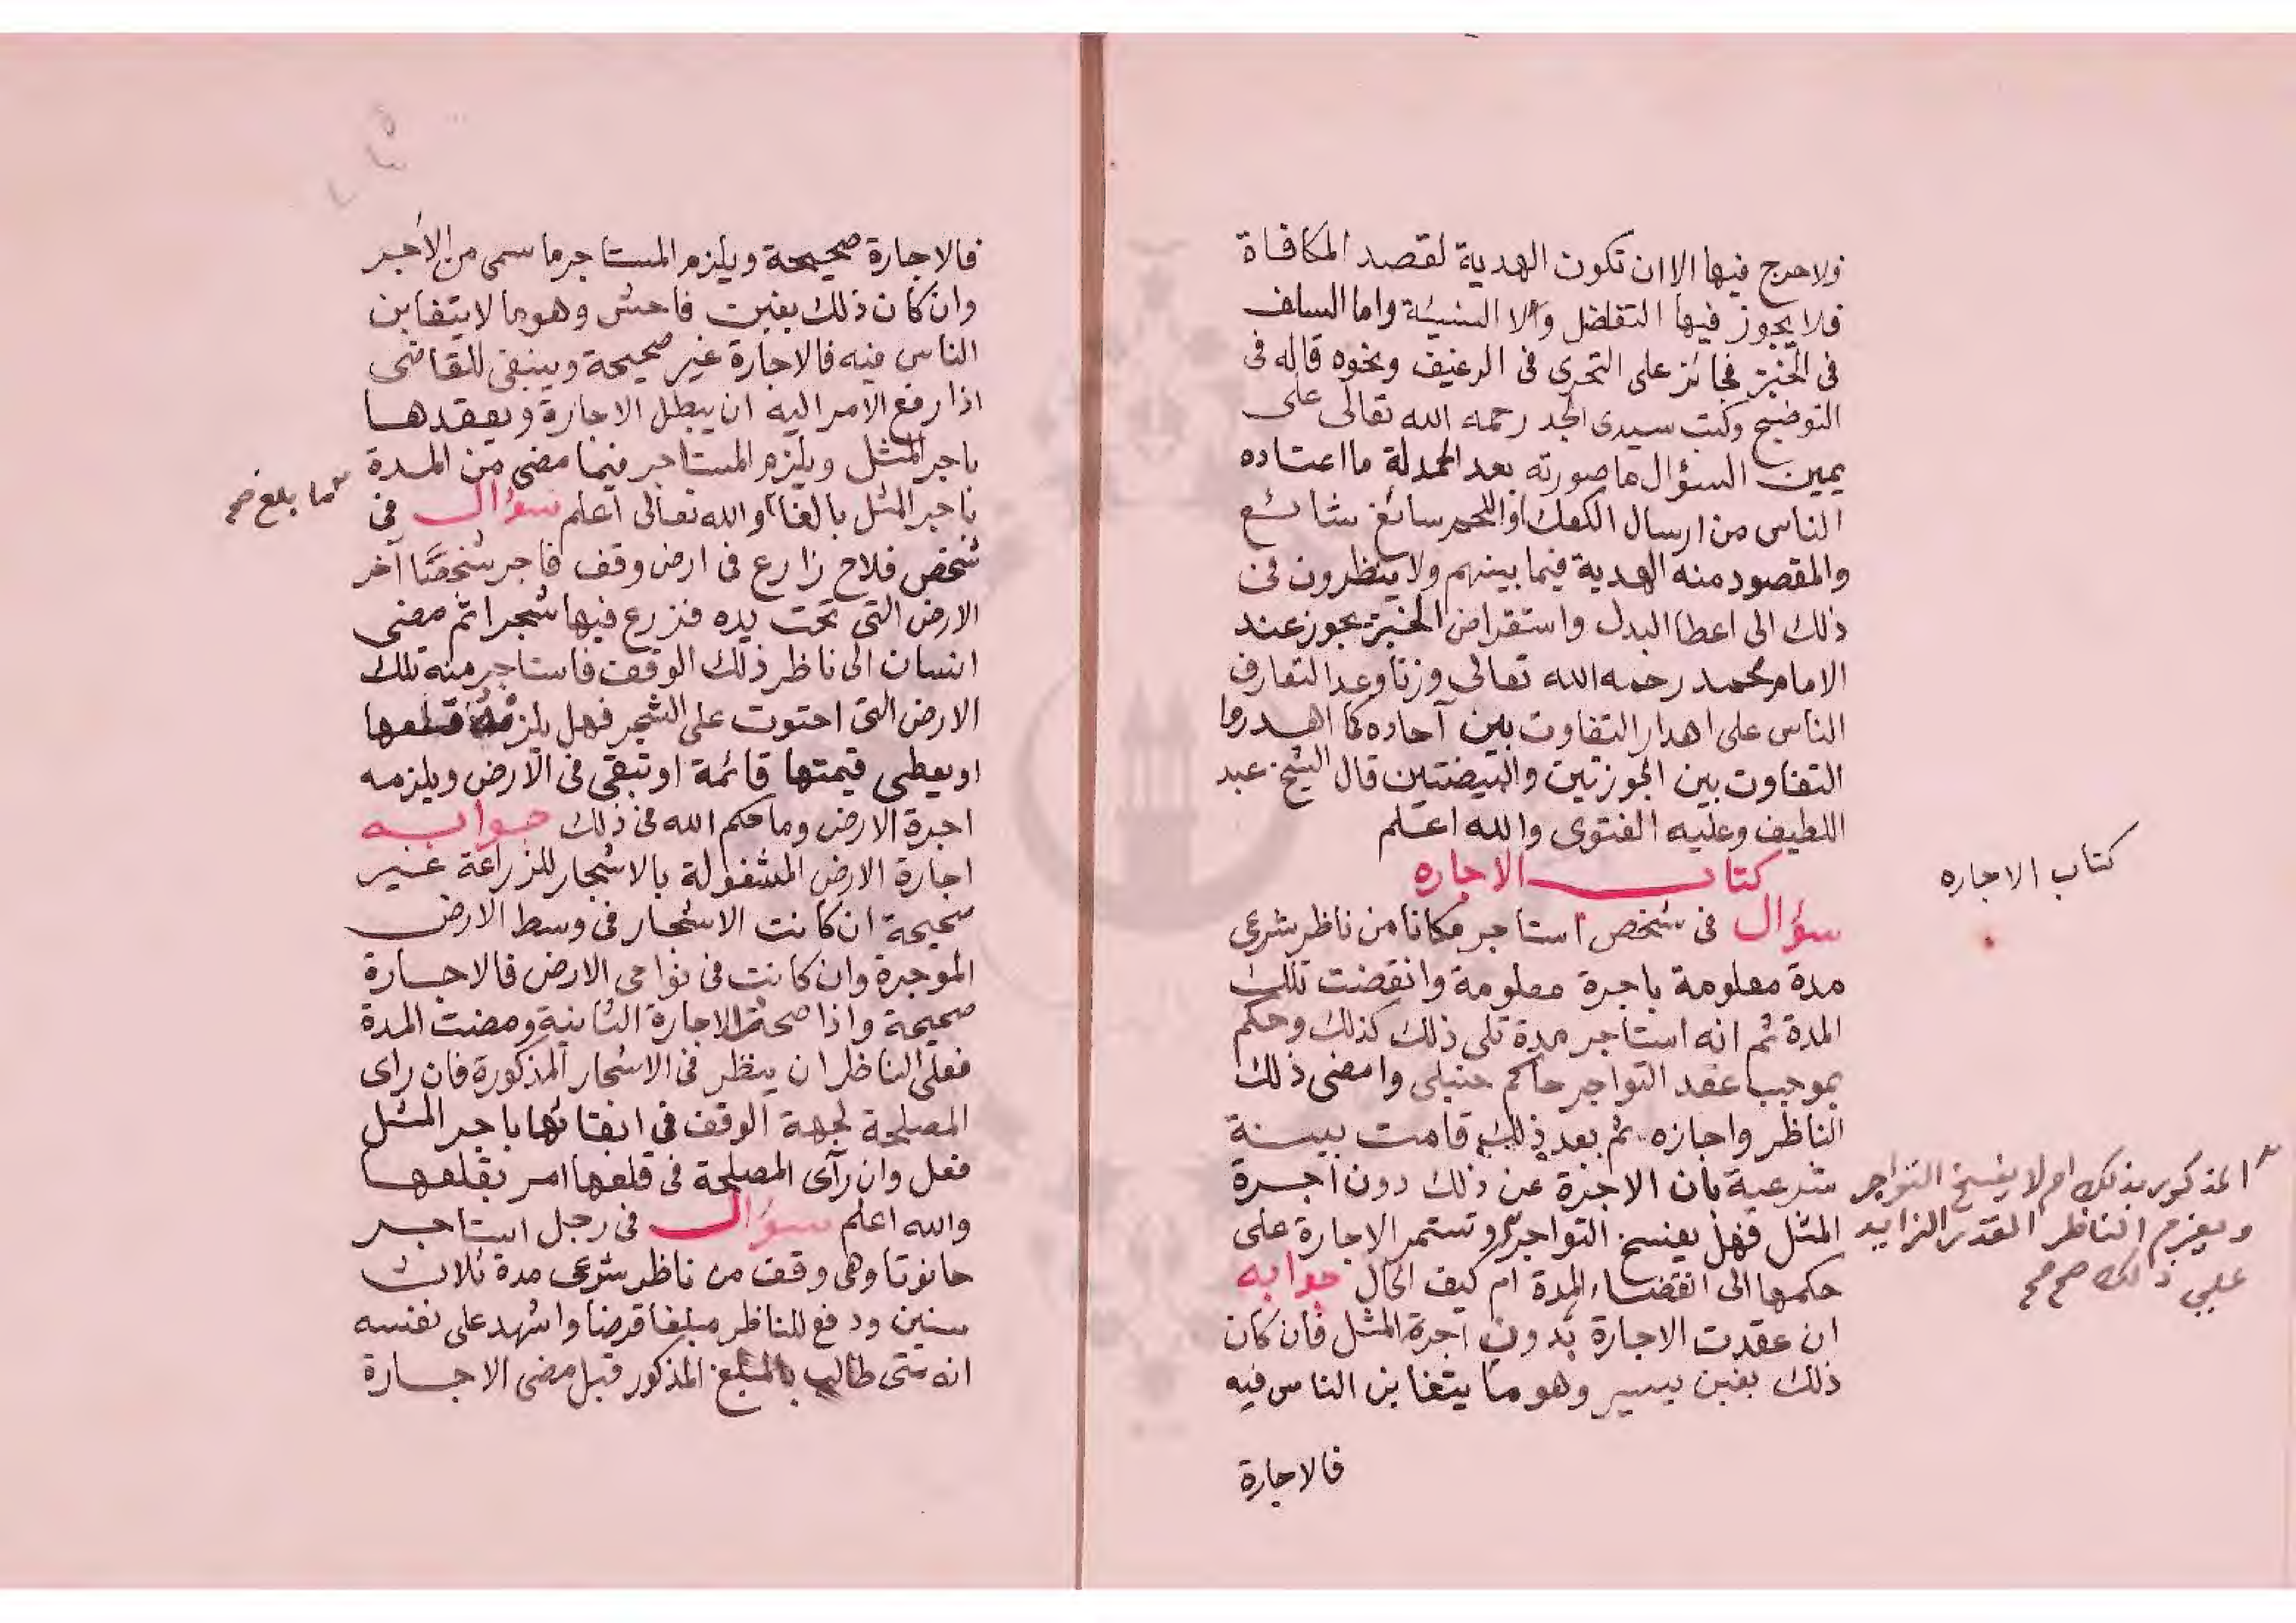 ولا حرج فيها الا ان تكون الهدية لقصد المكافاة
فلا يجوز فيها التفاضل ولا النسيئة واما السلف
فى الخبز فجائز على التحرى فى الرغيف ونحوه قاله فى
التوضيح وكتب سيدى الجد رحمه الله تعالى على
يمين السؤال ما صورته بعد الحمدلة ما اعتاده
الناس من ارسال الكعك او اللحم سائغ شائع
والمقصود منه الهدية فيما بينهم ولا ينظرون فى
ذلك الى اعطا البدل واستقراض الخبز يجوز عند
الامام محمد رحمه الله تعالى وزنا وعدا لتعارف
الناس على اهدار التفاوت بين آحاده كما اهدروا
التفاوت بين الجوزتين والبيضتين قال الشيخ عبد
اللطيف وعليه الفتوى والله اعلم
كتاب الاجاره
كتاب الاجاره
سؤال فى شخص استاجر مكانا من ناظر شرعى
مدة معلومة باجرة معلومة وانقضت تلك
المدة ثم انه استاجر مدة تلى ذلك كذلك وحكم
بموجب عقد التواجر حاكم حنبلى وامضى ذلك
الناظر واجازه ثم بعد ذلك قامت بينة
شرعية بان الاجرة عن ذلك دون اجرة
المثل فهل يفسخ التواجر وتستمر الاجارة على
المذكور بذلك ام لا يفسخ التواجر
ويغرم الناظر القدر الزايد
على ذلك صح صح
حكمها الى انقضاء المدة ام كيف الحال جوابه
ان عقدت الاجارة بدون اجرة المثل فان كان
ذلك بغبن يسير وهو ما يتغابن الناس فيه
فالاجارة
فالاجارة صحيحة ويلزم المستاجر ما سمى من الاجر
وان كان ذلك بغبن فاحش وهو ما لا يتغابن
الناس فيه فالاجارة غير صحيحة وينبغى للقاضى
اذا رفع الامر اليه ان يبطل الاجارة ويعقدها
باجر المثل ويلزم المستاجر فيما مضى من المدة
باجر المثل بالغا والله تعالى اعلم سؤال فى
ما بلغ صح
شخص فلاح زارع فى ارض وقف فاجر شخصا آخر
الارض التى تحت يده فزرع فيها شجرا ثم مضى
انسان الى ناظر ذلك الوقف فاستاجر منه تلك
الارض التى احتوت على الشجر فهل يلزمه قلعها
او يعطى قيمتها قائمة او تبقى فى الارض ويلزمه
اجرة الارض وما حكم الله فى ذلك جوابه
اجارة الارض المشغولة بالاشجار للزراعة غير
صحيحة ان كانت الاشجار فى وسط الارض
الموجرة وان كانت فى نواحى الارض فالاجارة
صحيحة واذا صحت الاجارة الثانية ومضت المدة
فعلى الناظر ان ينظر فى الاشجار المذكورة فان راى
المصلحة لجهة الوقف فى ابقائها باجر المثل
فعل وان رآى المصلحة فى قلعها امر بقلعها
والله اعلم سؤال فى رجل استاجر
حانوتا وهى وقف من ناظر شرعى مدة ثلاث
سنين ودفع للناظر مبلغا قرضا واشهد على نفسه
انه متى طالب بالمبلغ المذكور قبل مضى الاجارة